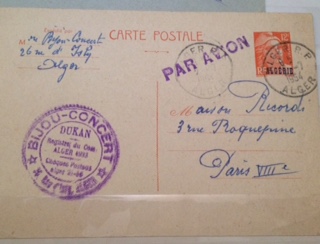 CARTE POSTALE
Mr Bijou-Concert
26 rue d'Isly
Alger
PAR AVION
ALGERIE
ALGER
Maison Ricordi
3 rue Roquépine
Paris VIIIe
BIJOU-CONCERT
DUKAN
Registre du Com.
ALGER